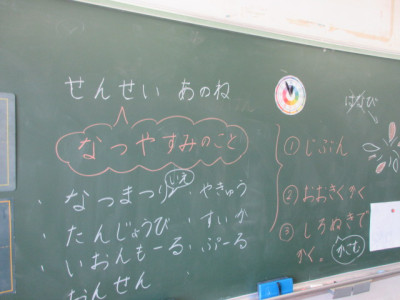 せんせい あのね
なつやすみのこと
なつまつり いえ やきゅう
たんじょうび すいか
いおんもーる ぷーる
おんせん
はなび
① じぶん
② おおきくかく
③ しろぬきで
かく。 かこむ